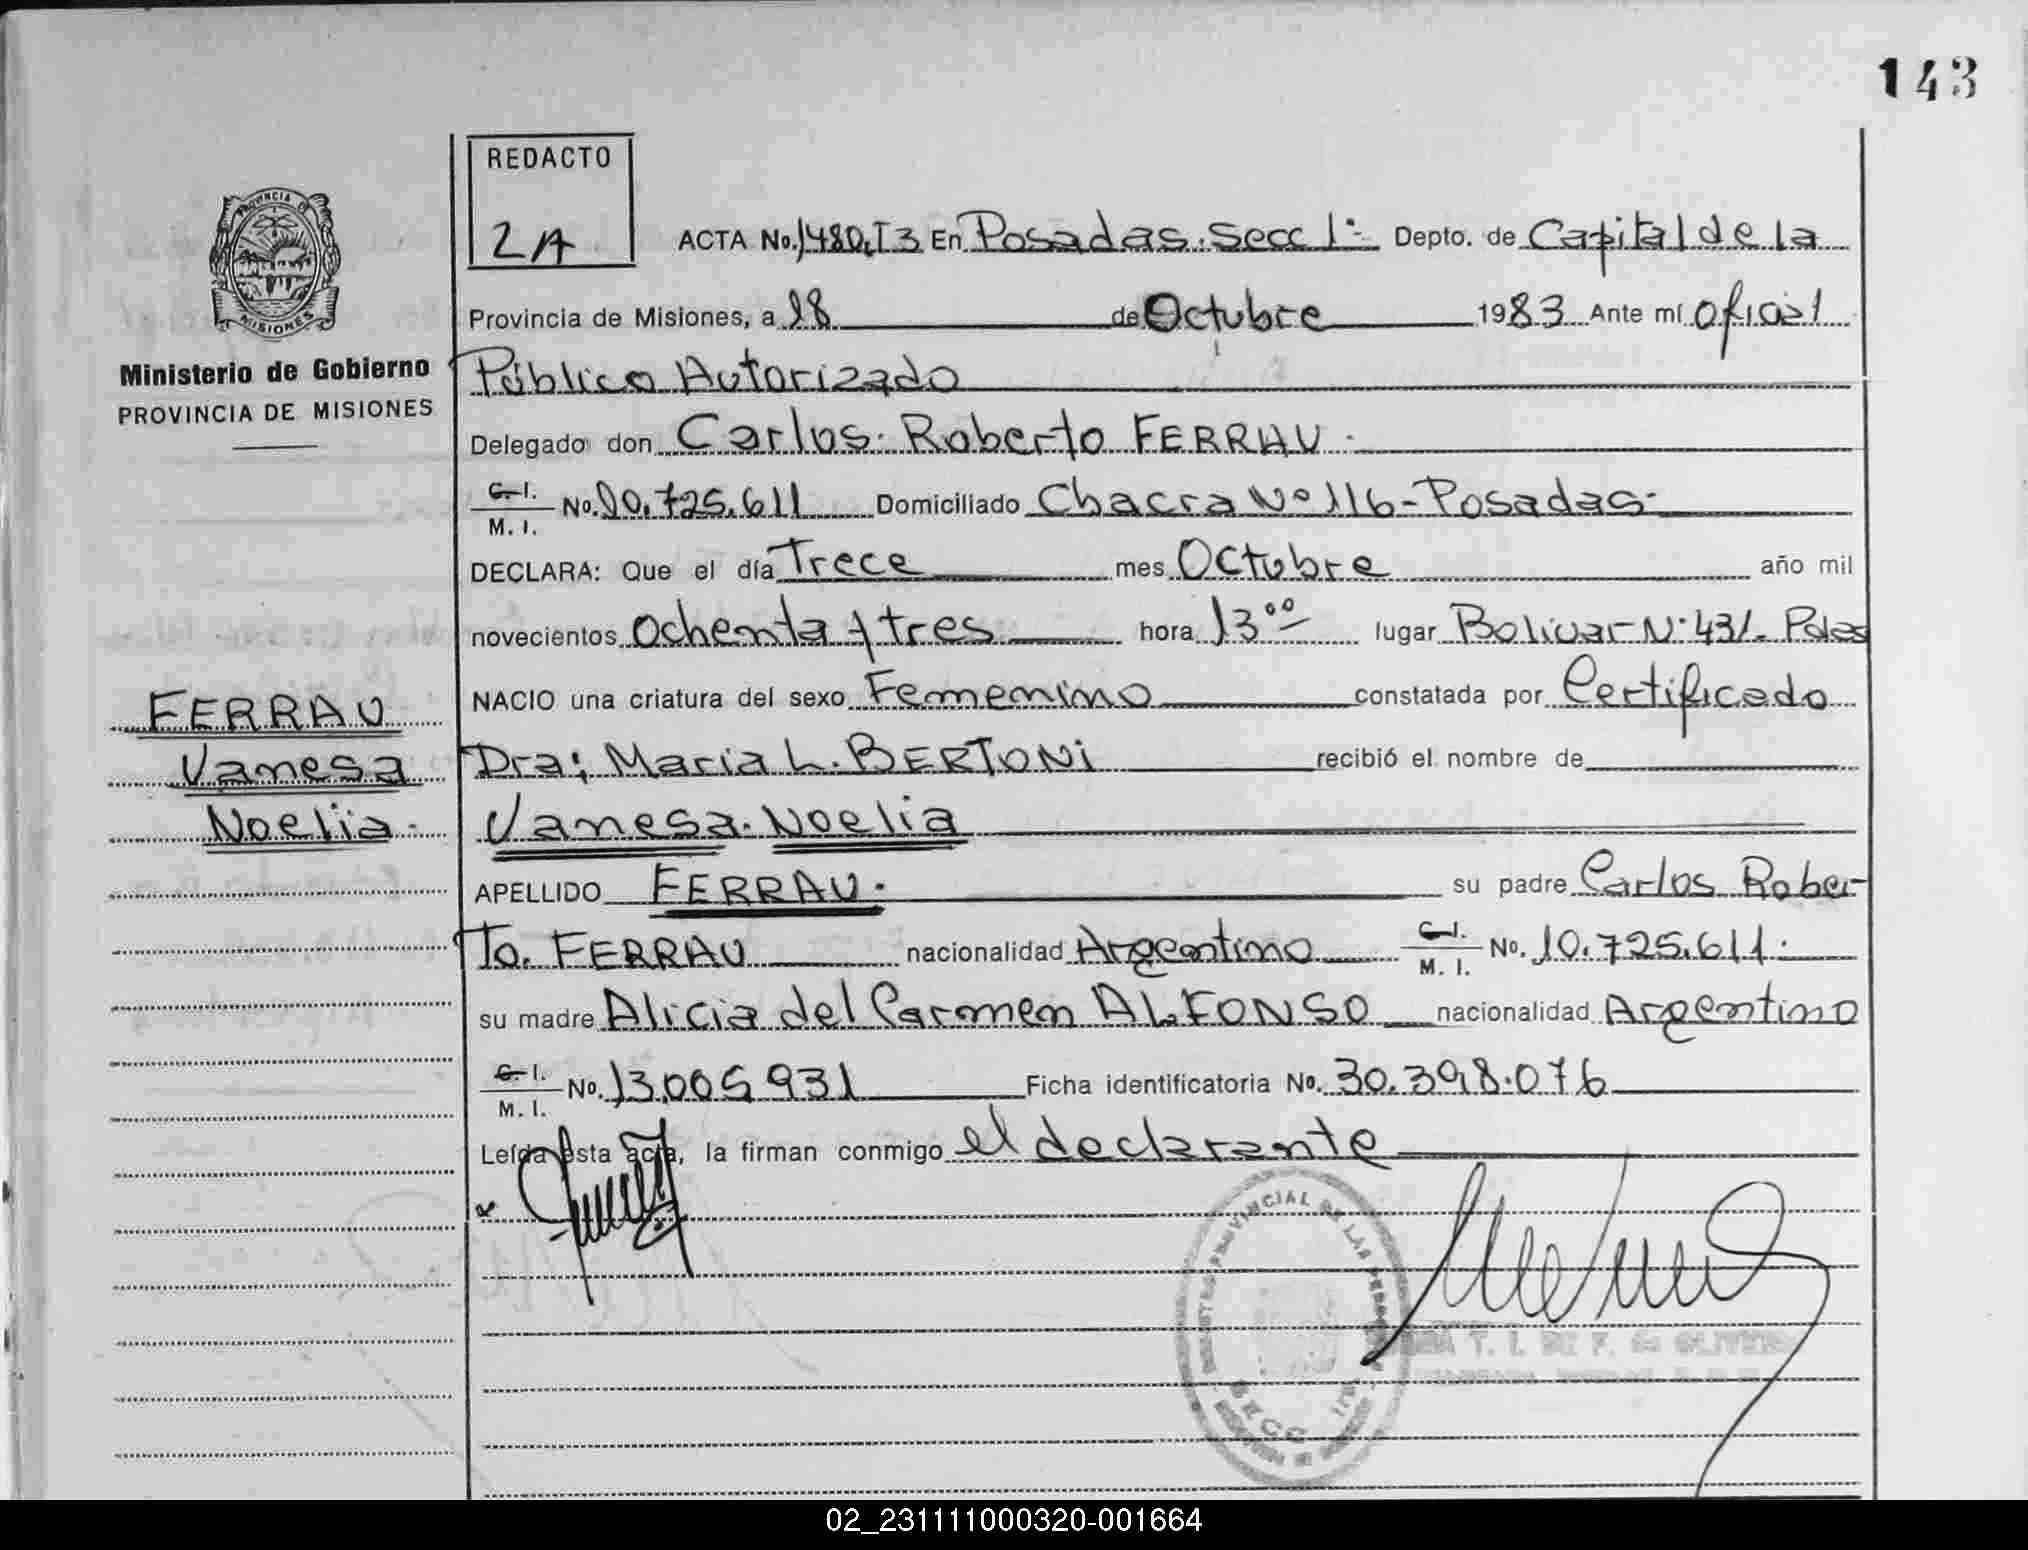 143
REDACTO
2A
ACTA No. 1480.T3 En Posadas. Secc 1ª Depto. de Capital de la
Provincia de Misiones, a 18 de Octubre 1983 Ante mí oficial
Público Autorizado
Delegado don Carlos. Roberto FERRAU.
C. I.
M. I. No. 10.725.611 Domiciliado Chacra Nº 116 - Posadas-
DECLARA: Que el día Trece mes Octubre año mil
novecientos Ochenta y tres hora 13 ºº lugar Bolivar Nº 431. Pdas
NACIO una criatura del sexo Femenino constatada por Certificado
Dra; Maria L. BERTONI recibió el nombre de
Vanesa. Noelia
APELLIDO FERRAU. su padre Carlos Rober-
To. FERRAU nacionalidad Argentino C. I.
M. I. No. 10.725.611.
su madre Alicia del Carmen ALFONSO nacionalidad Argentino
C. I.
M. I. No. 13.005 931 Ficha identificatoria No. 30.398.076
Leída esta acta, la firman conmigo el declarante
PROVINCIA DE
MISIONES
Ministerio de Gobierno
PROVINCIA DE MISIONES
FERRAU
Vanesa
Noelia.
PROVINCIAL DE LAS PERSONAS
SECC
T. I. DE F. de OLIVEIRA
02_231111000320-001664